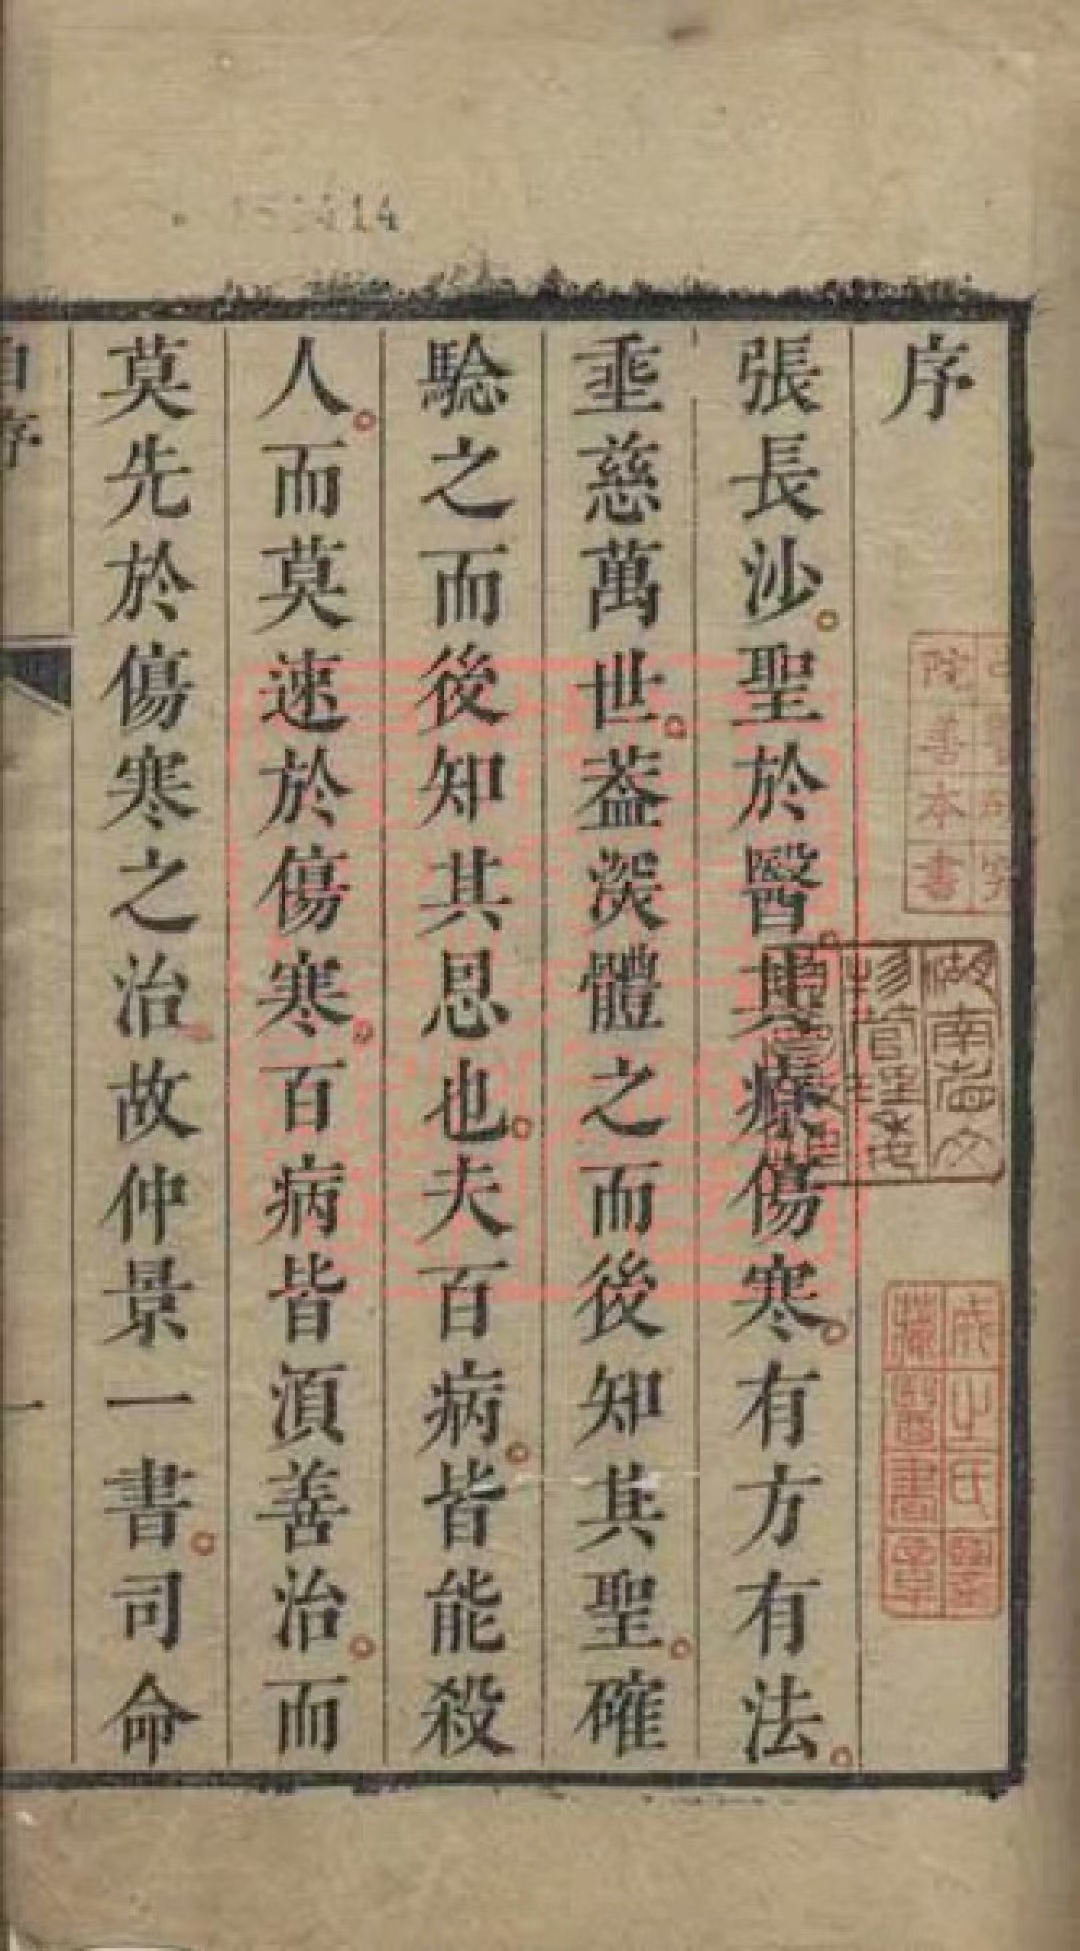 序
張長沙聖於醫其療傷寒有方有法
垂慈萬世葢深體之而後知其聖確
騐之而後知其恩也夫百病皆能殺
人而莫速於傷寒百病皆須善治而
莫先於傷寒之治故仲景一書司命
自序
一
院善本書
成之氏
藏醫書章